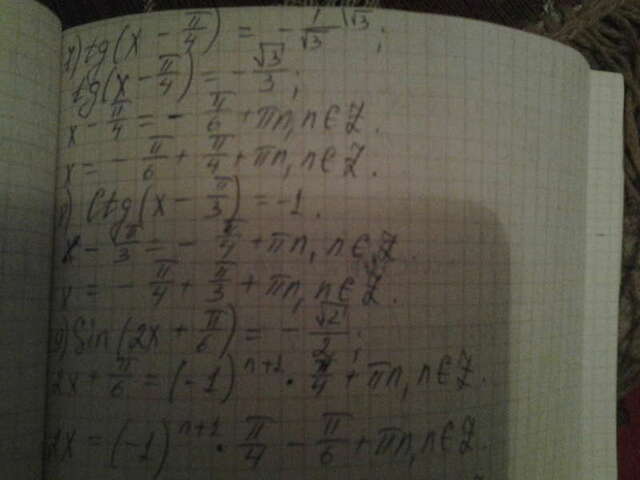 tg(x - π/4) = - 1/√3 |√3 ;
tg(x - π/4) = - √3/3 ;
x - π/4 = - π/6 + πn, n ∈ Z.
x = - π/6 + π/4 + πn, n ∈ Z.
Ctg(x - π/3) = -1.
x - π/3 = - π/4 + πn, n ∈ Z.
x = - π/4 + π/3 + πn, n ∈ Z.
Sin(2x + π/6) = - √2/2 ;
2x + π/6 = (-1)^(n+1) · π/4 + πn, n ∈ Z.
2x = (-1)^(n+1) · π/4 - π/6 + πn, n ∈ Z.